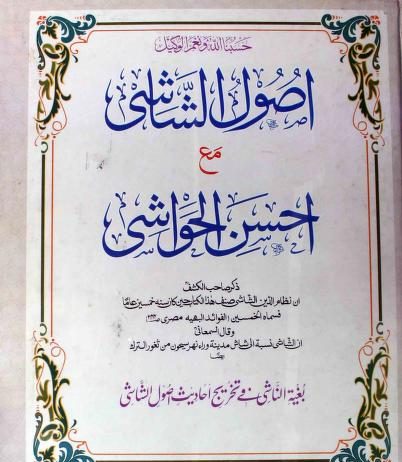 حسبنا الله ونعم الوكيل
اصول الشاشی
مع
احسن الحواشی
ذكر صاحب الكشف
ان نظام الدين الشاشی صنف هذا الكتاب حين كان سنه خمسين عاما
فسماه الخمسين (الفوائد البهيه مصری
وقال السمعانی
ان الشاشی نسبة الی شاش مدينة وراء نهر سيحون من ثغور الترك
بغية الناشی فی تخريج احاديث اصول الشاشی